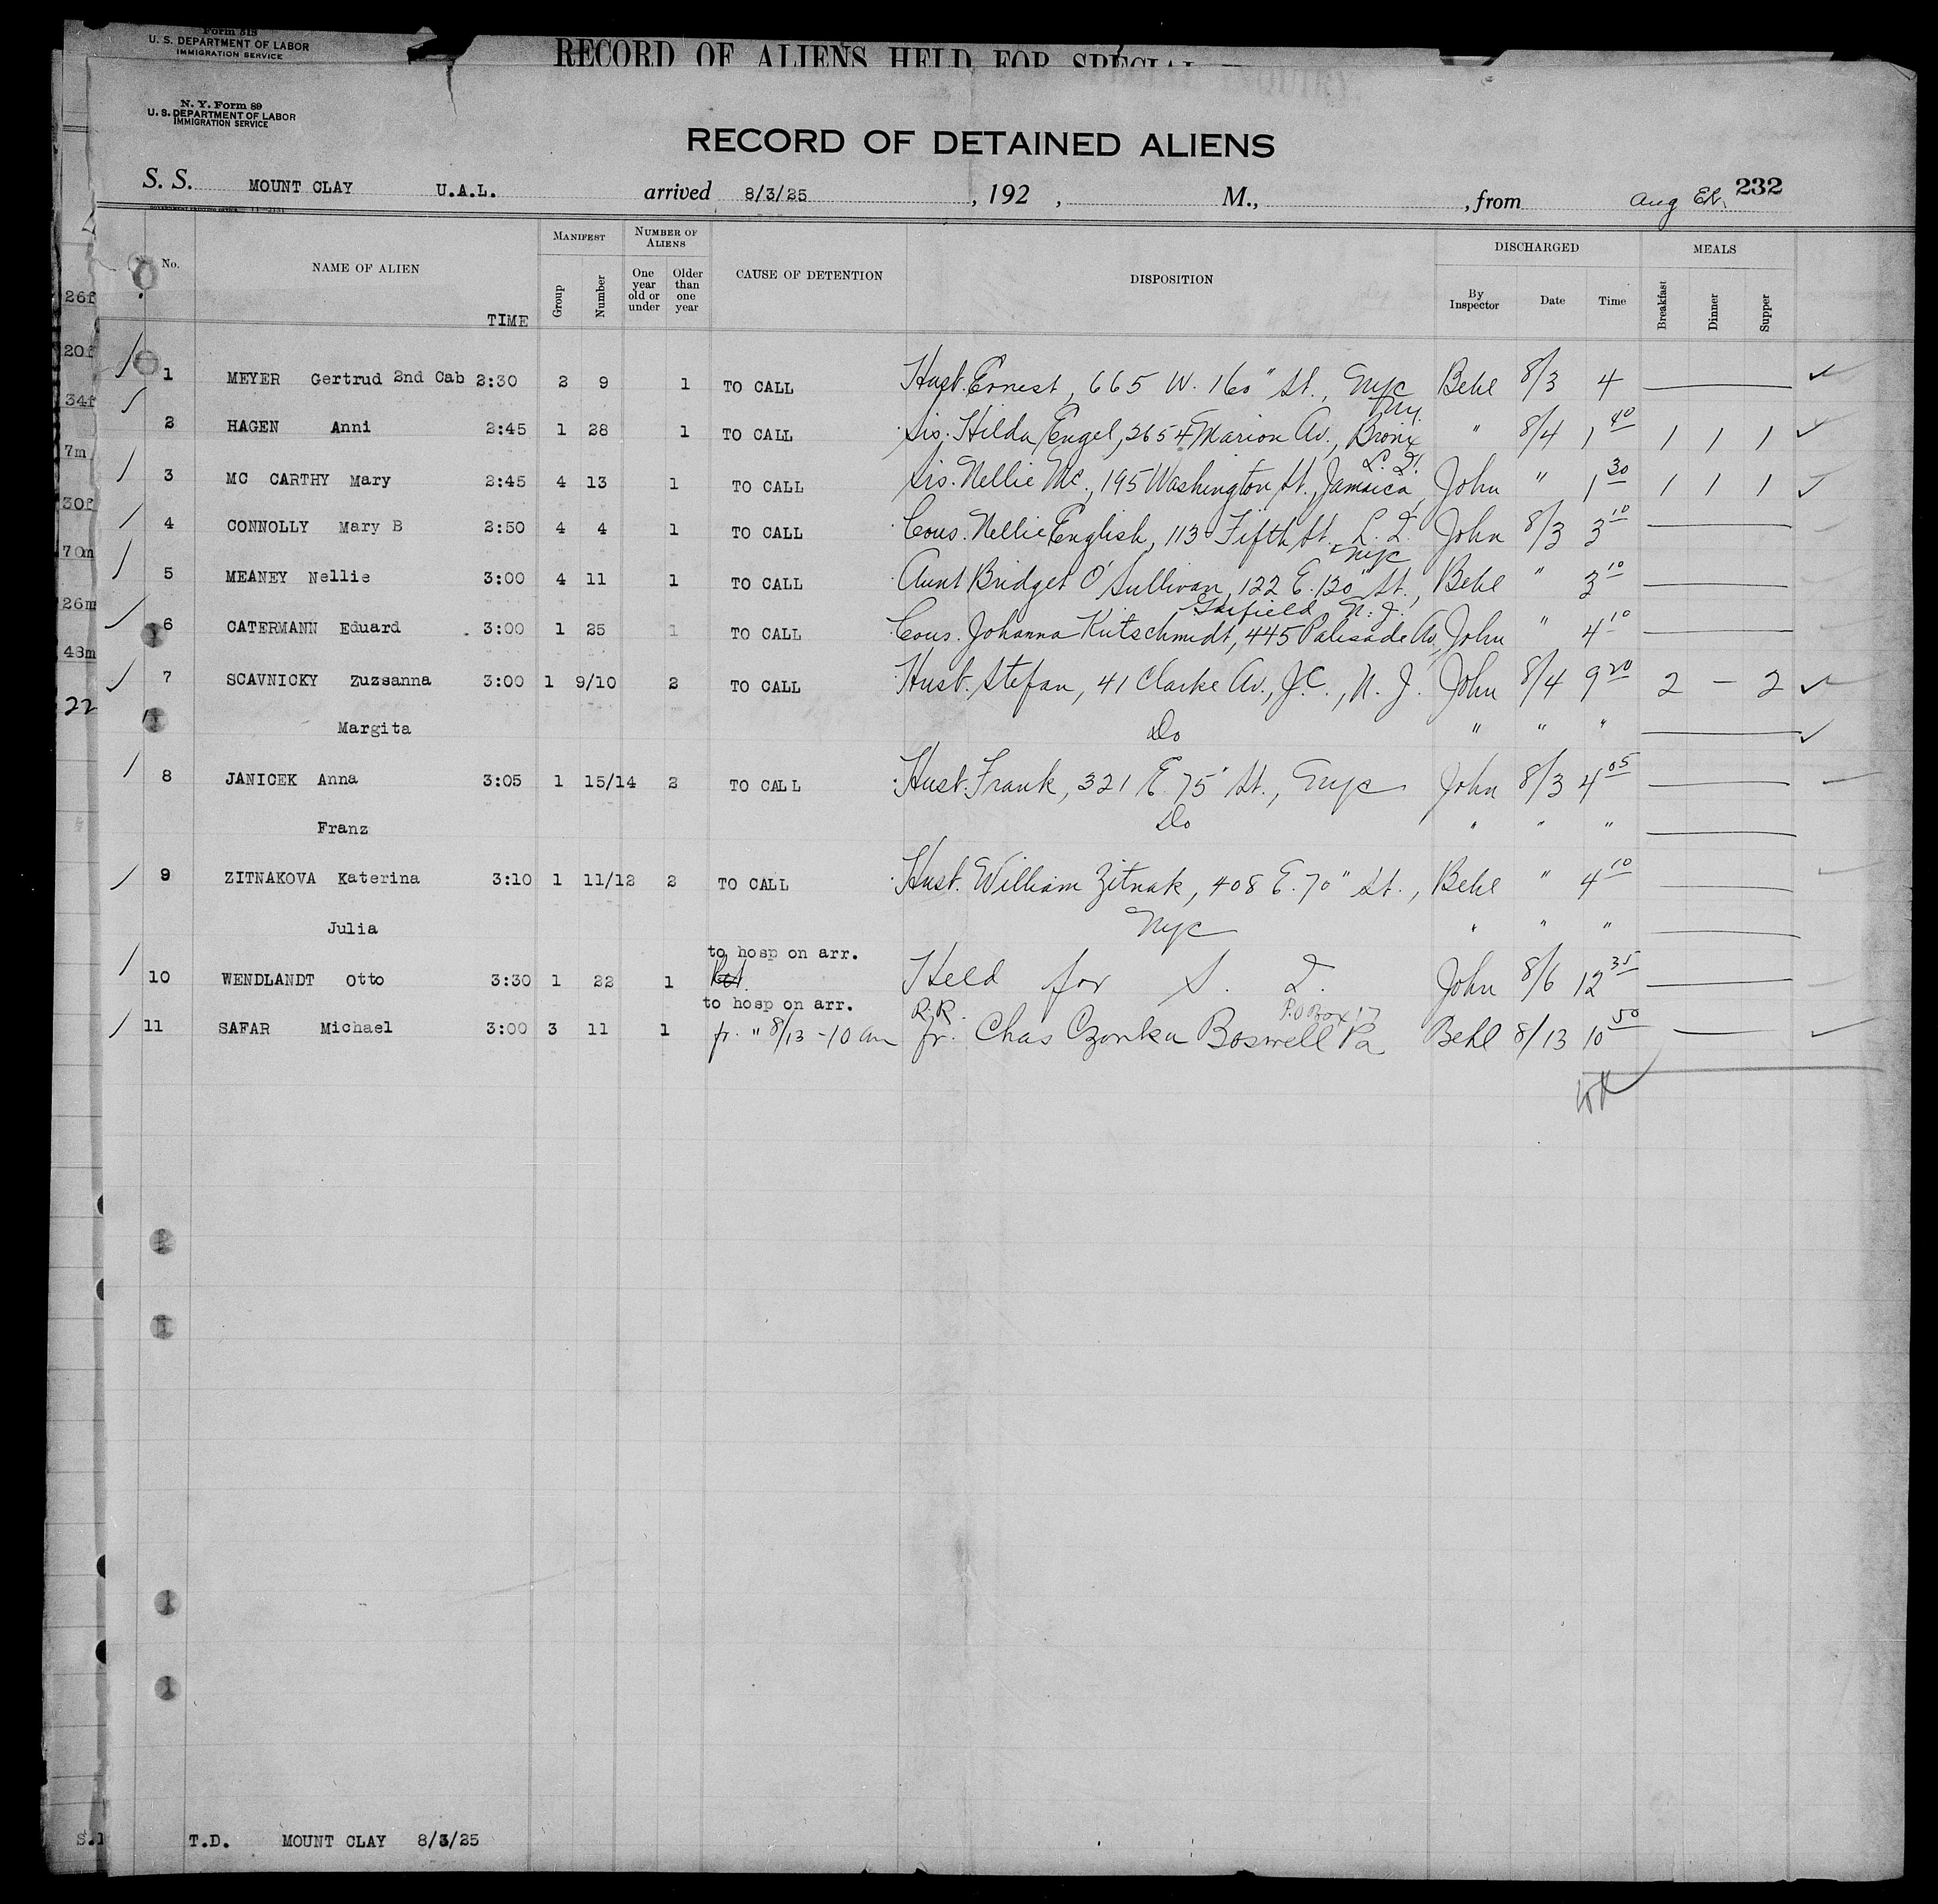 Form 518
U. S. DEPARTMENT OF LABOR
IMMIGRATION SERVICE
RECORD OF ALIENS HELD FOR SPECIAL
N. Y. Form 89
U. S. DEPARTMENT OF LABOR
IMMIGRATION SERVICE
RECORD OF DETAINED ALIENS
S. S. MOUNT CLAY U.A.L. arrived 8/3/25, 192 , M., , from Aug 232
No. NAME OF ALIEN TIME MANIFEST Group Number NUMBER OF ALIENS One year old or under Older than one year CAUSE OF DETENTION DISPOSITION DISCHARGED By Inspector Date Time MEALS Breakfast Dinner Supper
26f
20f
34f
7m
30f
70m
26m
43m
22
1 MEYER Gertrud 2nd Cab 2:30 2 9 1 TO CALL Husb. Ernest, 665 W. 160" St., NYC Behl 8/3 4
2 HAGEN Anni 2:45 1 28 1 TO CALL Sis. Hilda Engel, 2654 Marion Av., Bronx N.Y. " 8/4 1 40 1 1 1
3 MC CARTHY Mary 2:45 4 13 1 TO CALL Sis. Nellie Mc., 195 Washington St., Jamaica, L. I. John " 1 30 1 1 1
4 CONNOLLY Mary B 2:50 4 4 1 TO CALL Cous. Nellie English, 113 Fifth St. L. I. John 8/3 3 10
5 MEANEY Nellie 3:00 4 11 1 TO CALL Aunt Bridget O'Sullivan, 122 E. 130" St., NYC Behl " 3 10
6 CATERMANN Eduard 3:00 1 25 1 TO CALL Cous. Johanna Kutschmidt, 445 Palisade Av., Garfield N. J. John " 4 10
7 SCAVNICKY Zuzsanna 3:00 1 9/10 2 TO CALL Husb. Stefan, 41 Clarke Av., J.C., N. J. John 8/4 9 20 2 - 2
Margita Do " " "
8 JANICEK Anna 3:05 1 15/14 2 TO CALL Husb. Frank, 321 E 75" St., NYC John 8/3 4 05
Franz Do " " "
9 ZITNAKOVA Katerina 3:10 1 11/12 2 TO CALL Husb. William Zitnak, 408 E. 70" St., Behl " 4 10
Julia NYC " " "
to hosp on arr.
10 WENDLANDT Otto 3:30 1 22 1 Held for S. I. John 8/6 12 35
to hosp on arr. R.R. P.O Box 17
11 SAFAR Michael 3:00 3 11 1 fr. " 8/13 - 10 am fr. Chas Czonka Boswell Pa Behl 8/13 10 50
S.
T.D. MOUNT CLAY 8/3/25